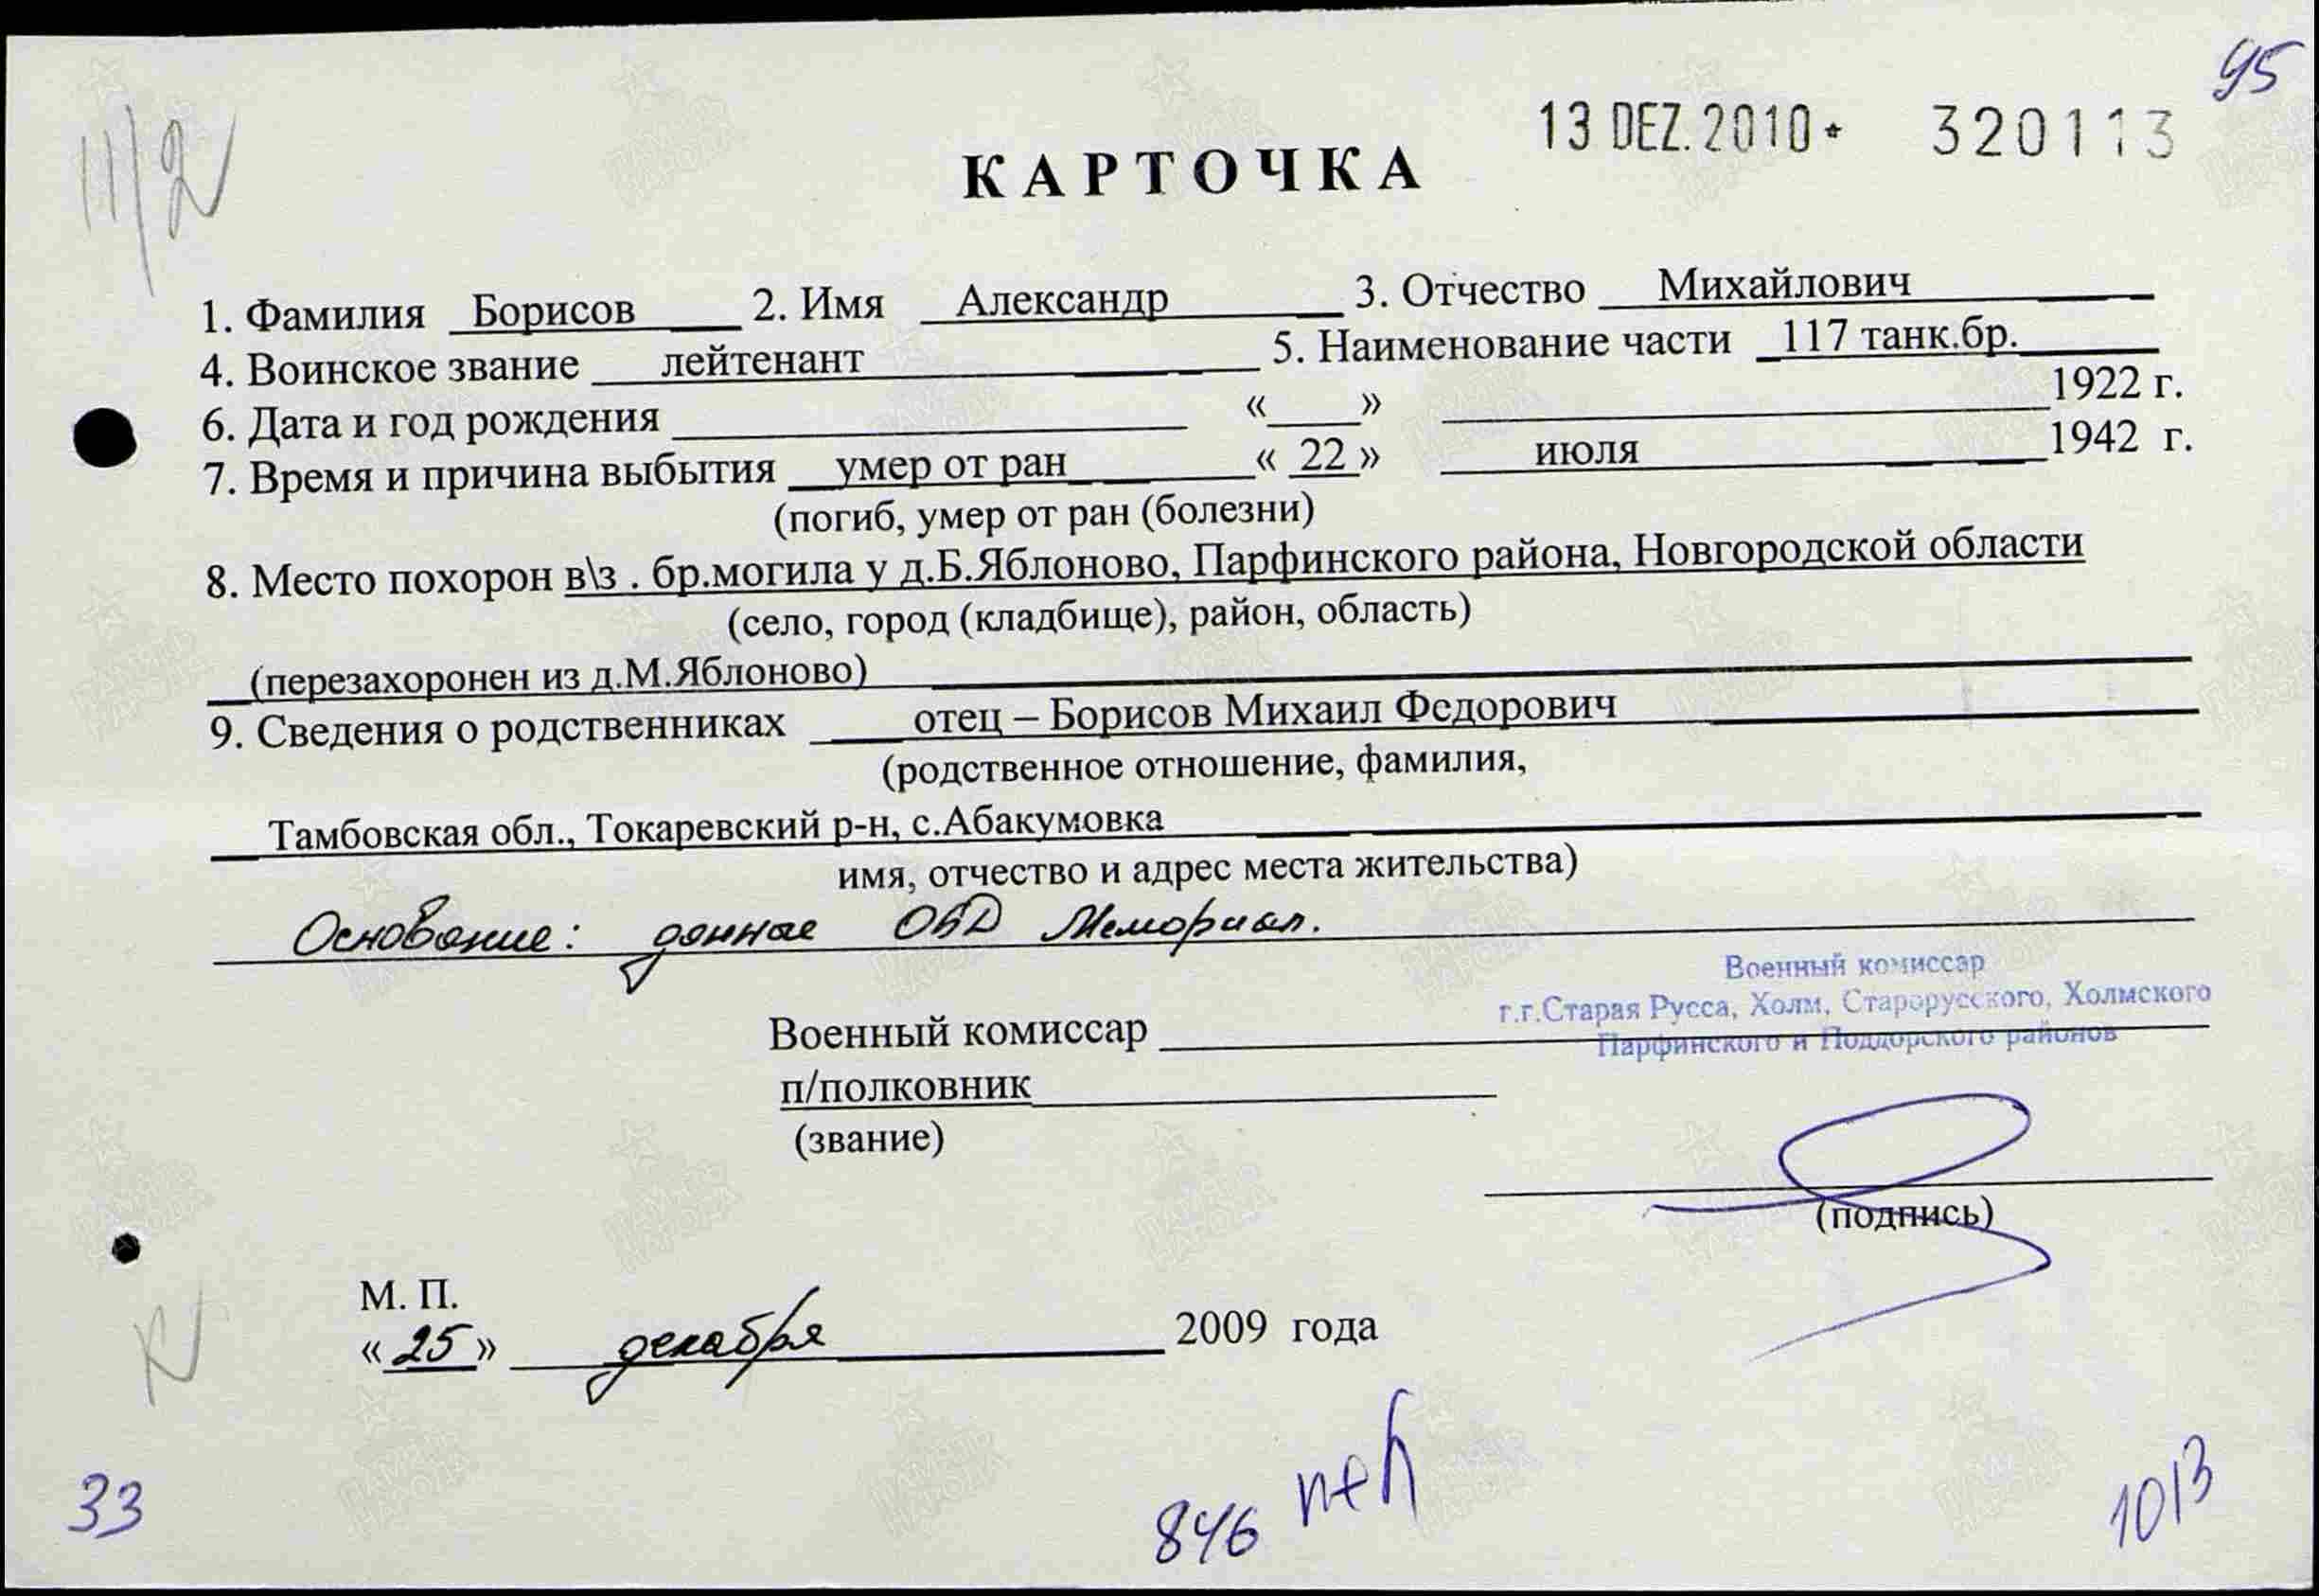 95
11/2
13 DEZ. 2010 * 320113
КАРТОЧКА
1. Фамилия Борисов 2. Имя Александр 3. Отчество Михайлович
4. Воинское звание лейтенант 5. Наименование части 117 танк.бр.
6. Дата и год рождения « » 1922 г.
7. Время и причина выбытия умер от ран « 22 » июля 1942 г.
(погиб, умер от ран (болезни)
8. Место похорон в\з . бр.могила у д.Б.Яблоново, Парфинского района, Новгородской области
(село, город (кладбище), район, область)
(перезахоронен из д.М.Яблоново)
9. Сведения о родственниках отец – Борисов Михаил Федорович
(родственное отношение, фамилия,
Тамбовская обл., Токаревский р-н, с.Абакумовка
имя, отчество и адрес места жительства)
Основание: данные ОБД Мемориал.
Военный комиссар
г.г.Старая Русса, Холм, Старорусского, Холмского
Парфинского и Поддорского районов
Военный комиссар
п/полковник
(звание)
(подпись)
М. П.
« 25 » декабря 2009 года
33
846
1013
ПАМЯТЬ НАРОДА